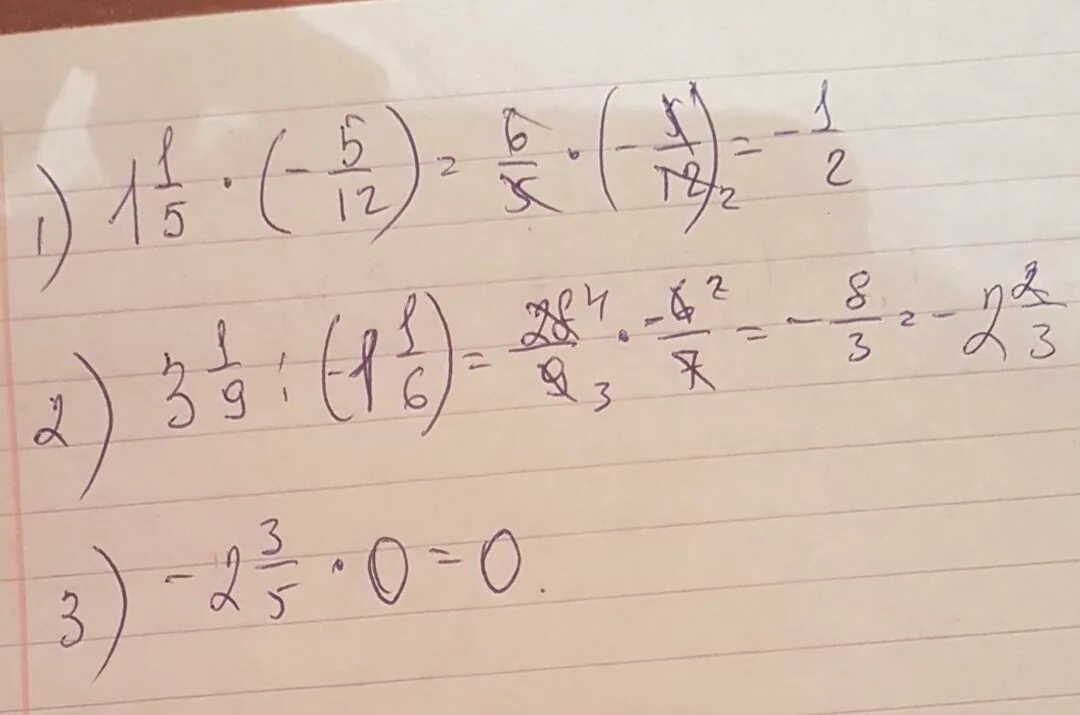 1) 1 1/5 · (- 5/12) = 6/5 · (- 5¹/12₂) = - 1/2
2) 3 1/9 : (-1 1/6) = 28⁴/9₃ · -6²/7 = - 8/3 = - 2 2/3
3) - 2 3/5 · 0 = 0.